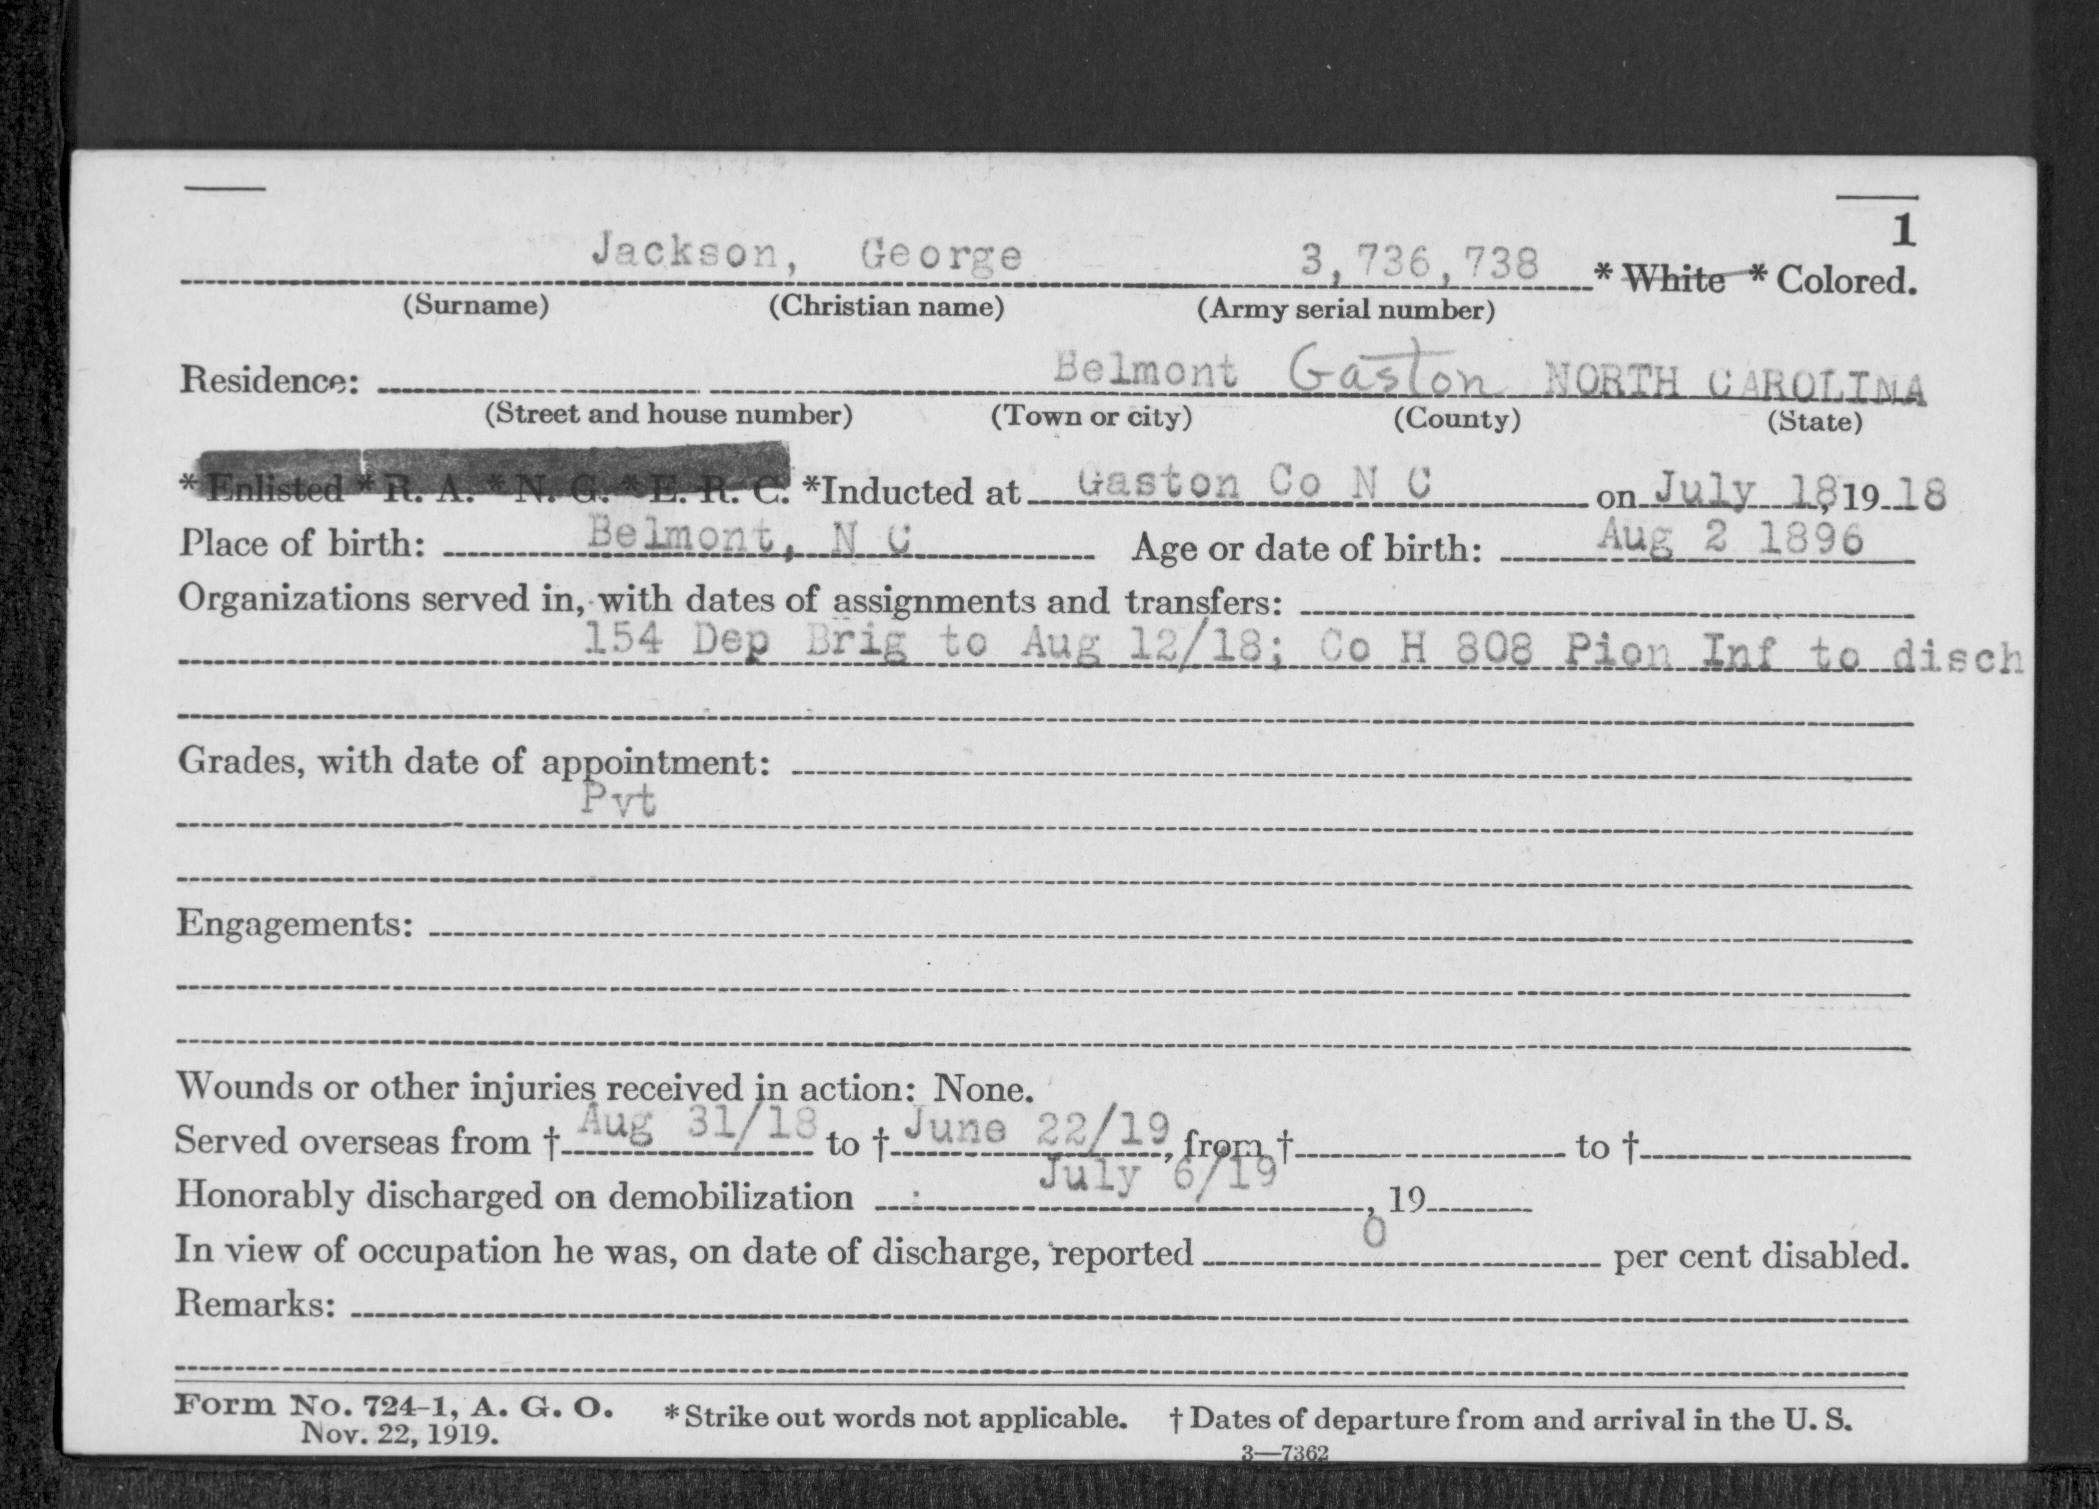 1
Jackson, George 3,736,738 * White * Colored.
(Surname) (Christian name) (Army serial number)
Residence: Belmont Gaston NORTH CAROLINA
(Street and house number) (Town or city) (County) (State)
* Enlisted * R. A. * N. G. * E. R. C. *Inducted at Gaston Co N C on July 18, 19 18
Place of birth: Belmont, N C Age or date of birth: Aug 2 1896
Organizations served in, with dates of assignments and transfers:
154 Dep Brig to Aug 12/18; Co H 808 Pion Inf to disch
Grades, with date of appointment:
Pvt
Engagements:
Wounds or other injuries received in action: None.
Served overseas from † Aug 31/18 to † June 22/19, from † to †
Honorably discharged on demobilization July 6/19, 19
In view of occupation he was, on date of discharge, reported 0 per cent disabled.
Remarks:
Form No. 724-1, A. G. O. * Strike out words not applicable. † Dates of departure from and arrival in the U. S.
Nov. 22, 1919.
3—7362